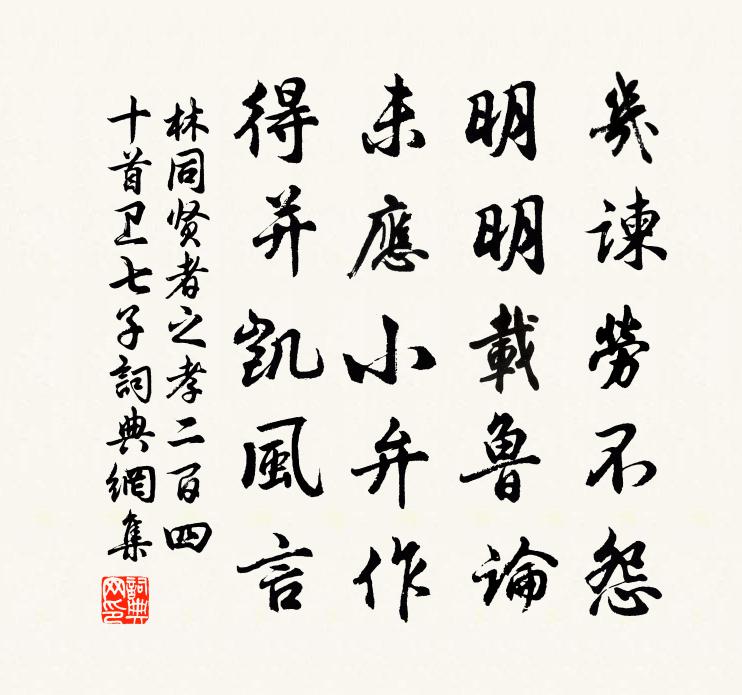 幾諫勞不怨
明明載魯論
未應小弁作
得并凱風言
林同贤者之孝二百四
十首卫七子詞典網集
詞典網印